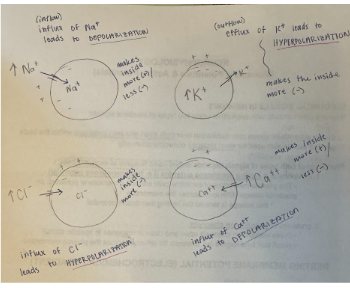 (inflow)
influx of Na+
leads to DEPOLARIZATION
↑ Na+
Na+
makes
inside
more (+)/
less (-)
(outflow)
efflux of K+ leads to
HYPERPOLARIZATION
K+
↑K+
makes the inside
more (-)
↑Cl-
Cl-
makes
inside
more (-)
influx of Cl-
leads to HYPERPOLARIZATION
Ca++
↑Ca++
makes inside
more (+)/
less (-)
influx of Ca++
leads to DEPOLARIZATION